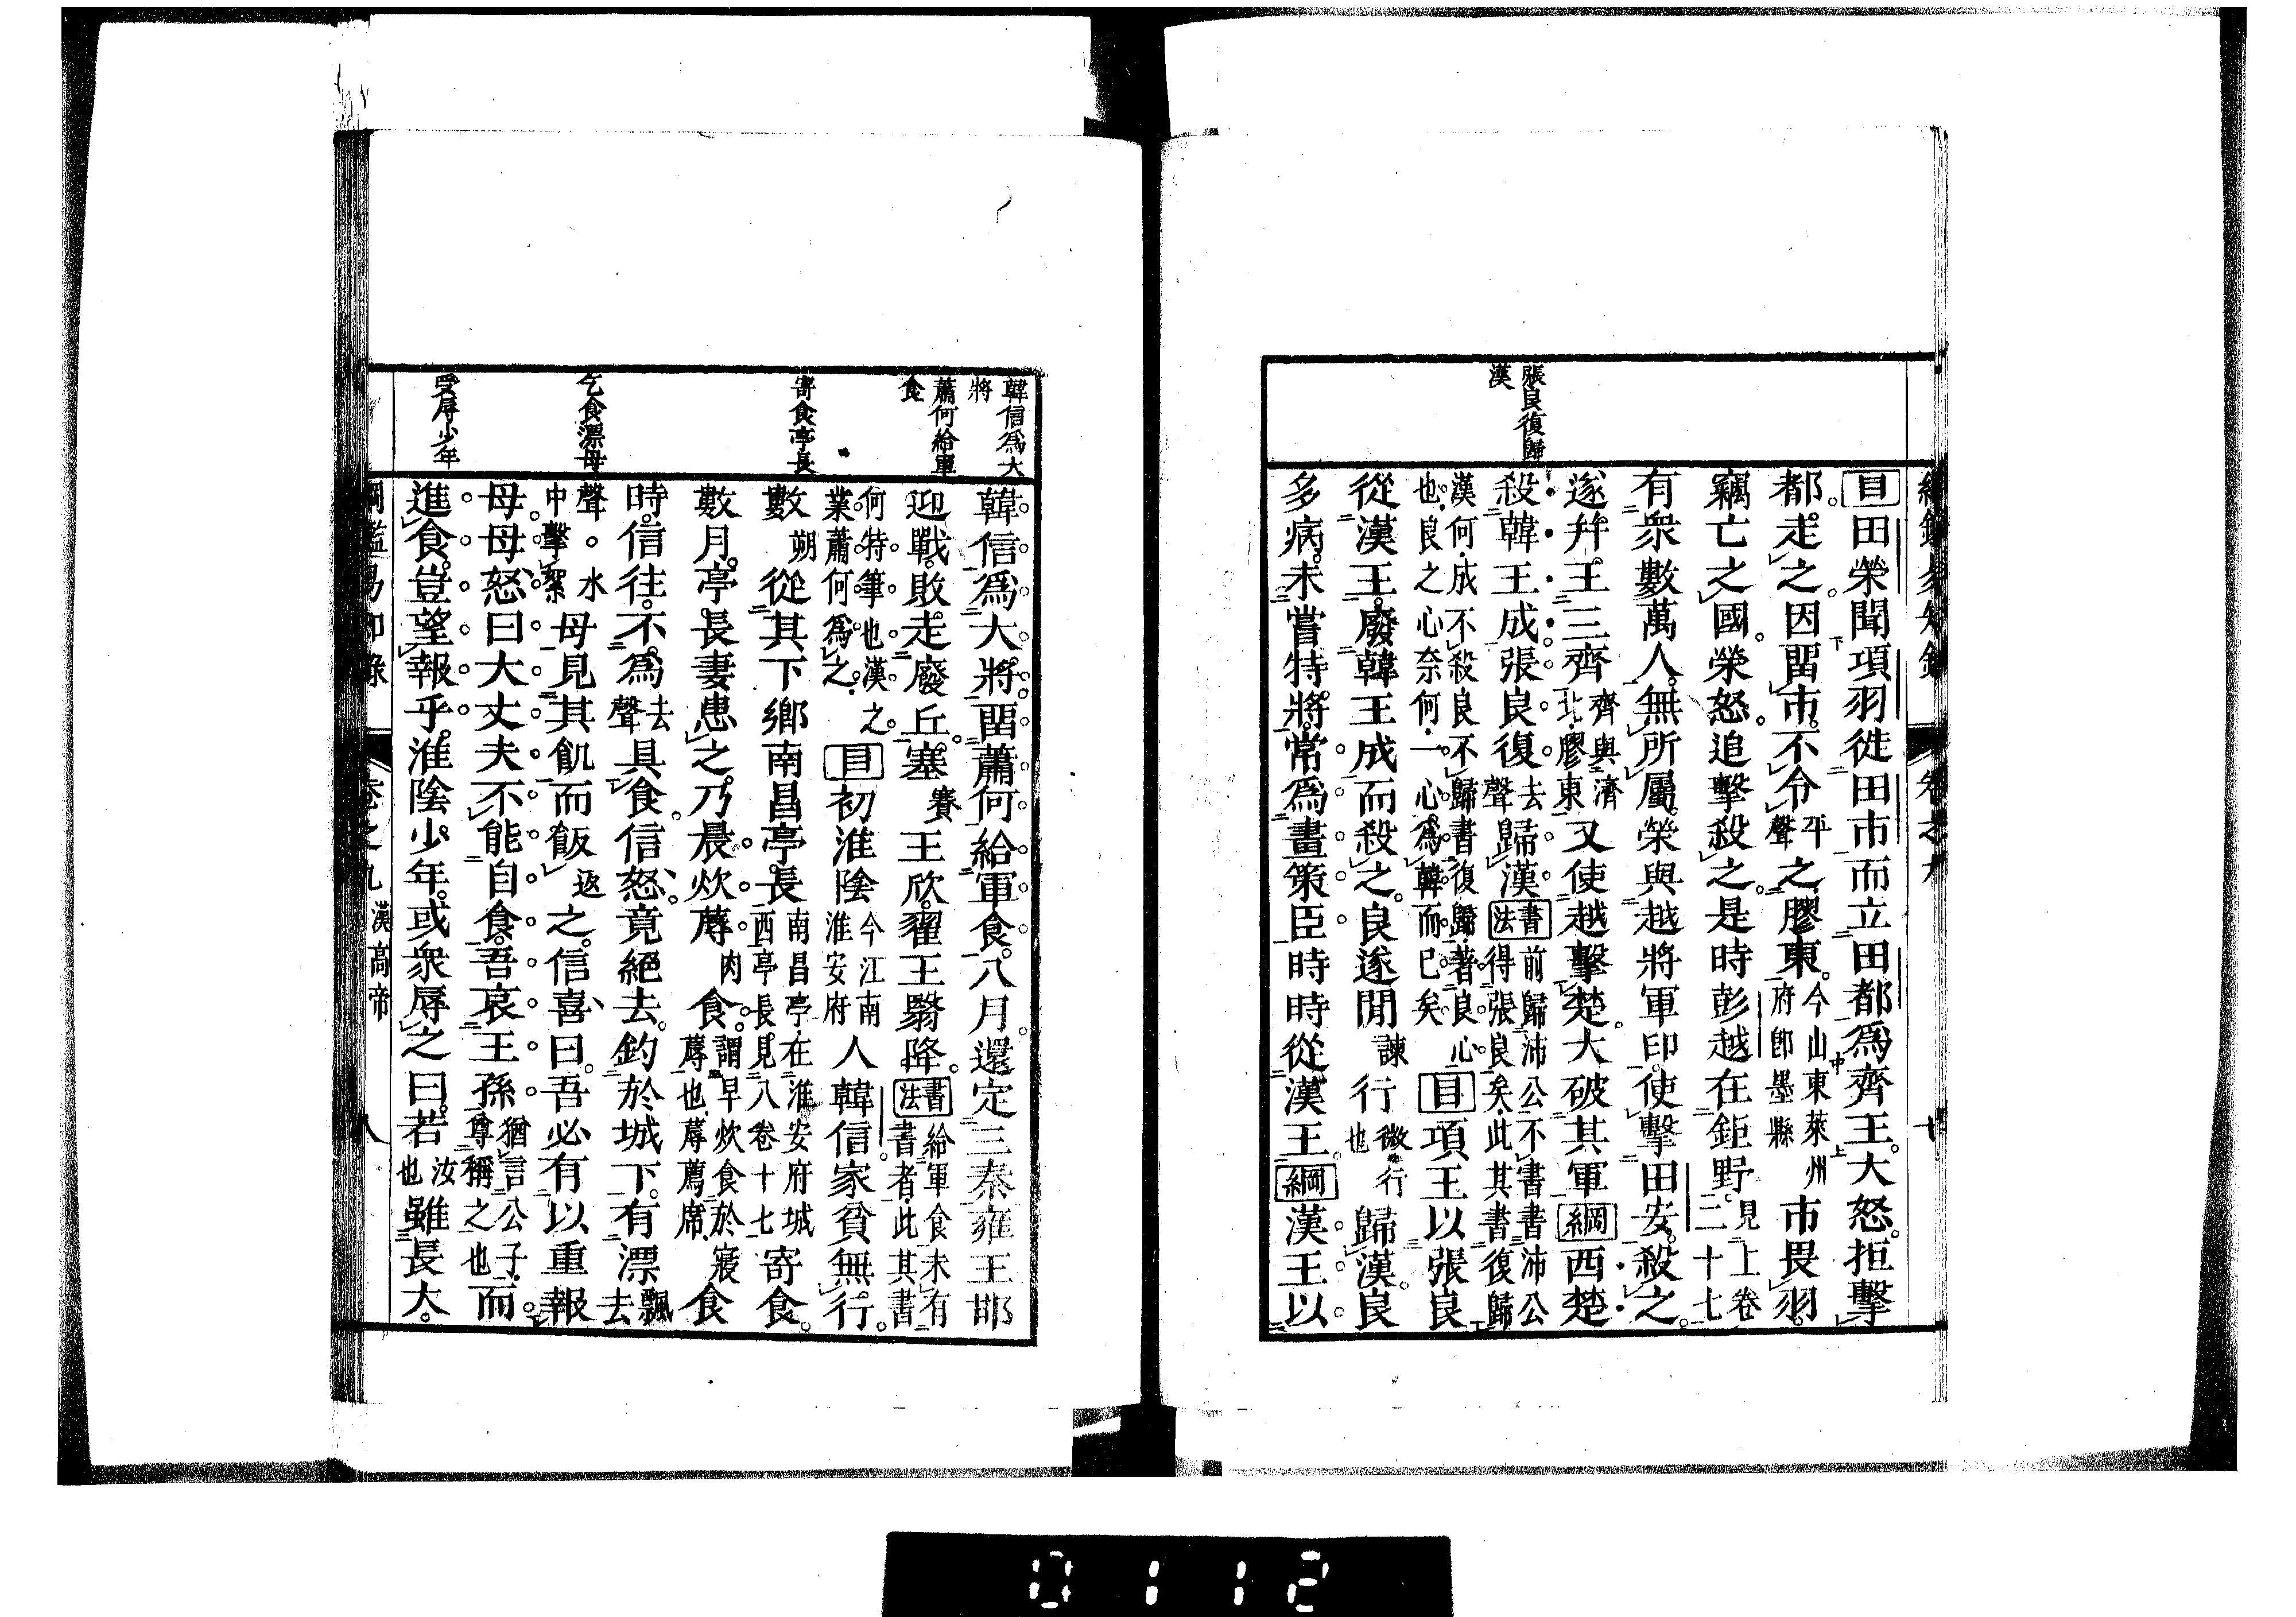 綱鑑易知錄 卷之九 七
張良復歸
漢
目田榮聞項羽徙田市而立田都為齊王大怒拒擊
都走之因畱市不令平聲之膠東今山東萊州府卽墨縣市畏羽
竊亡之國榮怒追擊殺之是時彭越在鉅野見上卷二十七
有衆數萬人無所屬榮與越將軍印使擊田安殺之
遂幷王三齊齊與濟北膠東又使越擊楚大破其軍綱西楚
殺韓王成張良復去聲歸漢書法前歸沛公不書書沛公得張良矣此其書復歸
漢何成不殺良不歸書復歸著良心也良之心奈何一心為韓而已矣目項王以張良
從漢王廢韓王成而殺之良遂閒諫行微行也歸漢良
多病未嘗特將將常為畫策臣時時從漢王綱漢王以
韓信為大
將
蕭何給軍
食
寄食亭長
乞食漂母
受辱少年
韓信為大將畱蕭何給軍食八月還定三秦雍王邯
迎戰敗走廢丘塞賽王欣翟王翳降書法給軍食未有書者此其書
何特筆也漢之業蕭何為之目初淮陰今江南淮安府人韓信家貧無行
數朔從其下鄉南昌亭長南昌亭在淮安府城西亭長見八卷十七寄食
數月亭長妻患之乃晨炊蓐肉食謂早炊食於寢蓐也蓐薦席食
時信往不為去聲具食信怒竟絕去釣於城下有漂飄去
聲水中擊絮母見其飢而飯返之信喜曰吾必有以重報
母母怒曰大丈夫不能自食吾哀王孫猶言公子尊稱之也而
進食豈望報乎淮陰少年或衆辱之曰若汝也雖長大
綱鑑易知錄 卷之九 漢高帝 八
0112